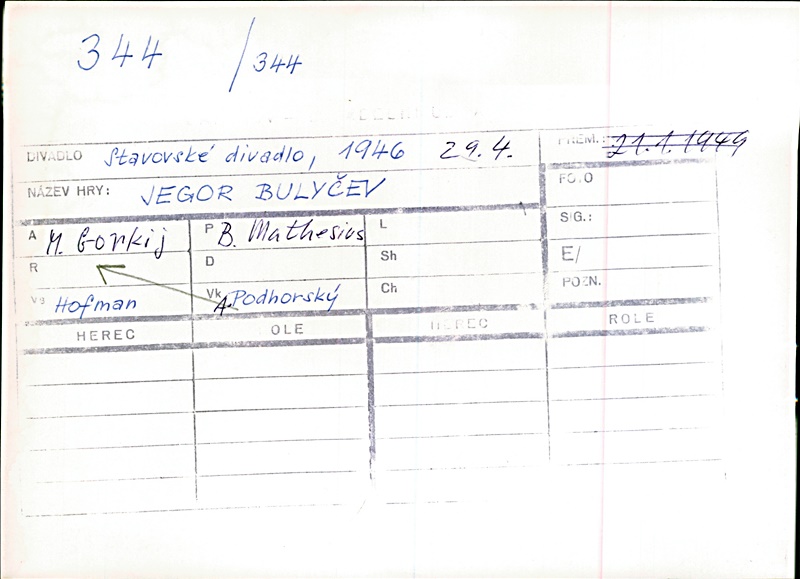 344 / 344
DIVADLO Stavovské divadlo, 1946 29.4. PREM.: 21.1.1949
NÁZEV HRY: JEGOR BULYČEV FOTO
A M. Gorkij P B. Mathesius L SIG.:
R D Sh E/
Vs Hofman Vk A. Podhorský Ch POZN.
HEREC ROLE HEREC ROLE